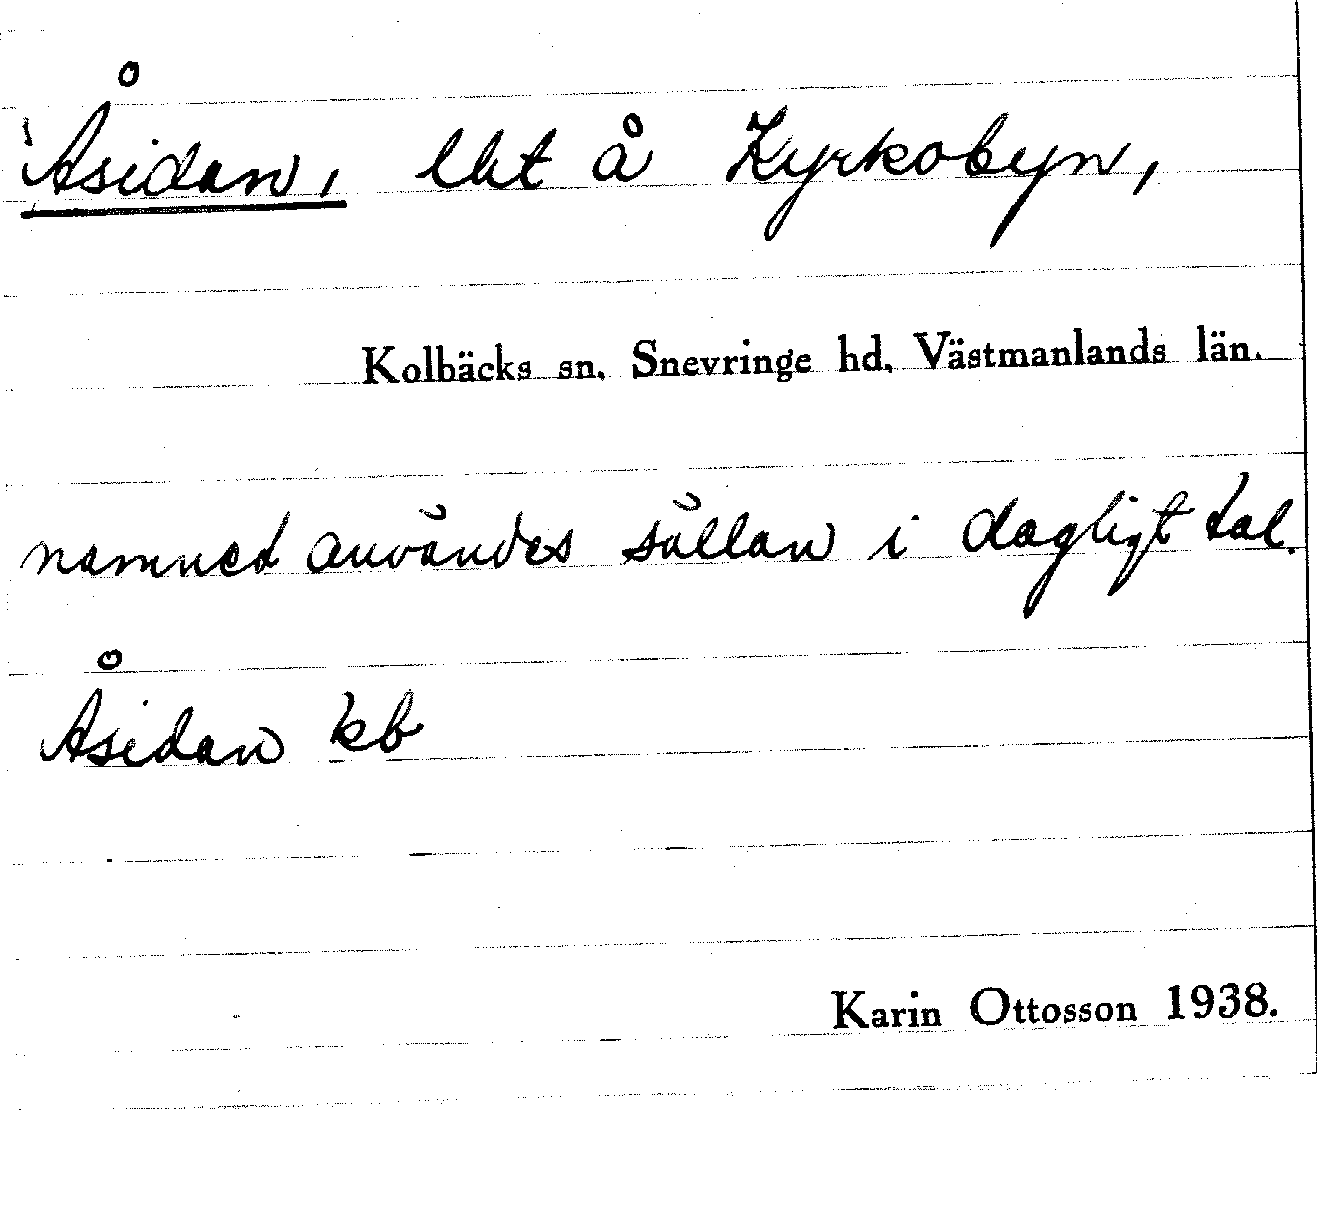 Åsidan, lht å Kyrkobyn,
Kolbäcks sn, Snevringe hd, Västmanlands län.
namnet användes sällan i dagligt tal.
Åsidan kb
Karin Ottosson 1938.